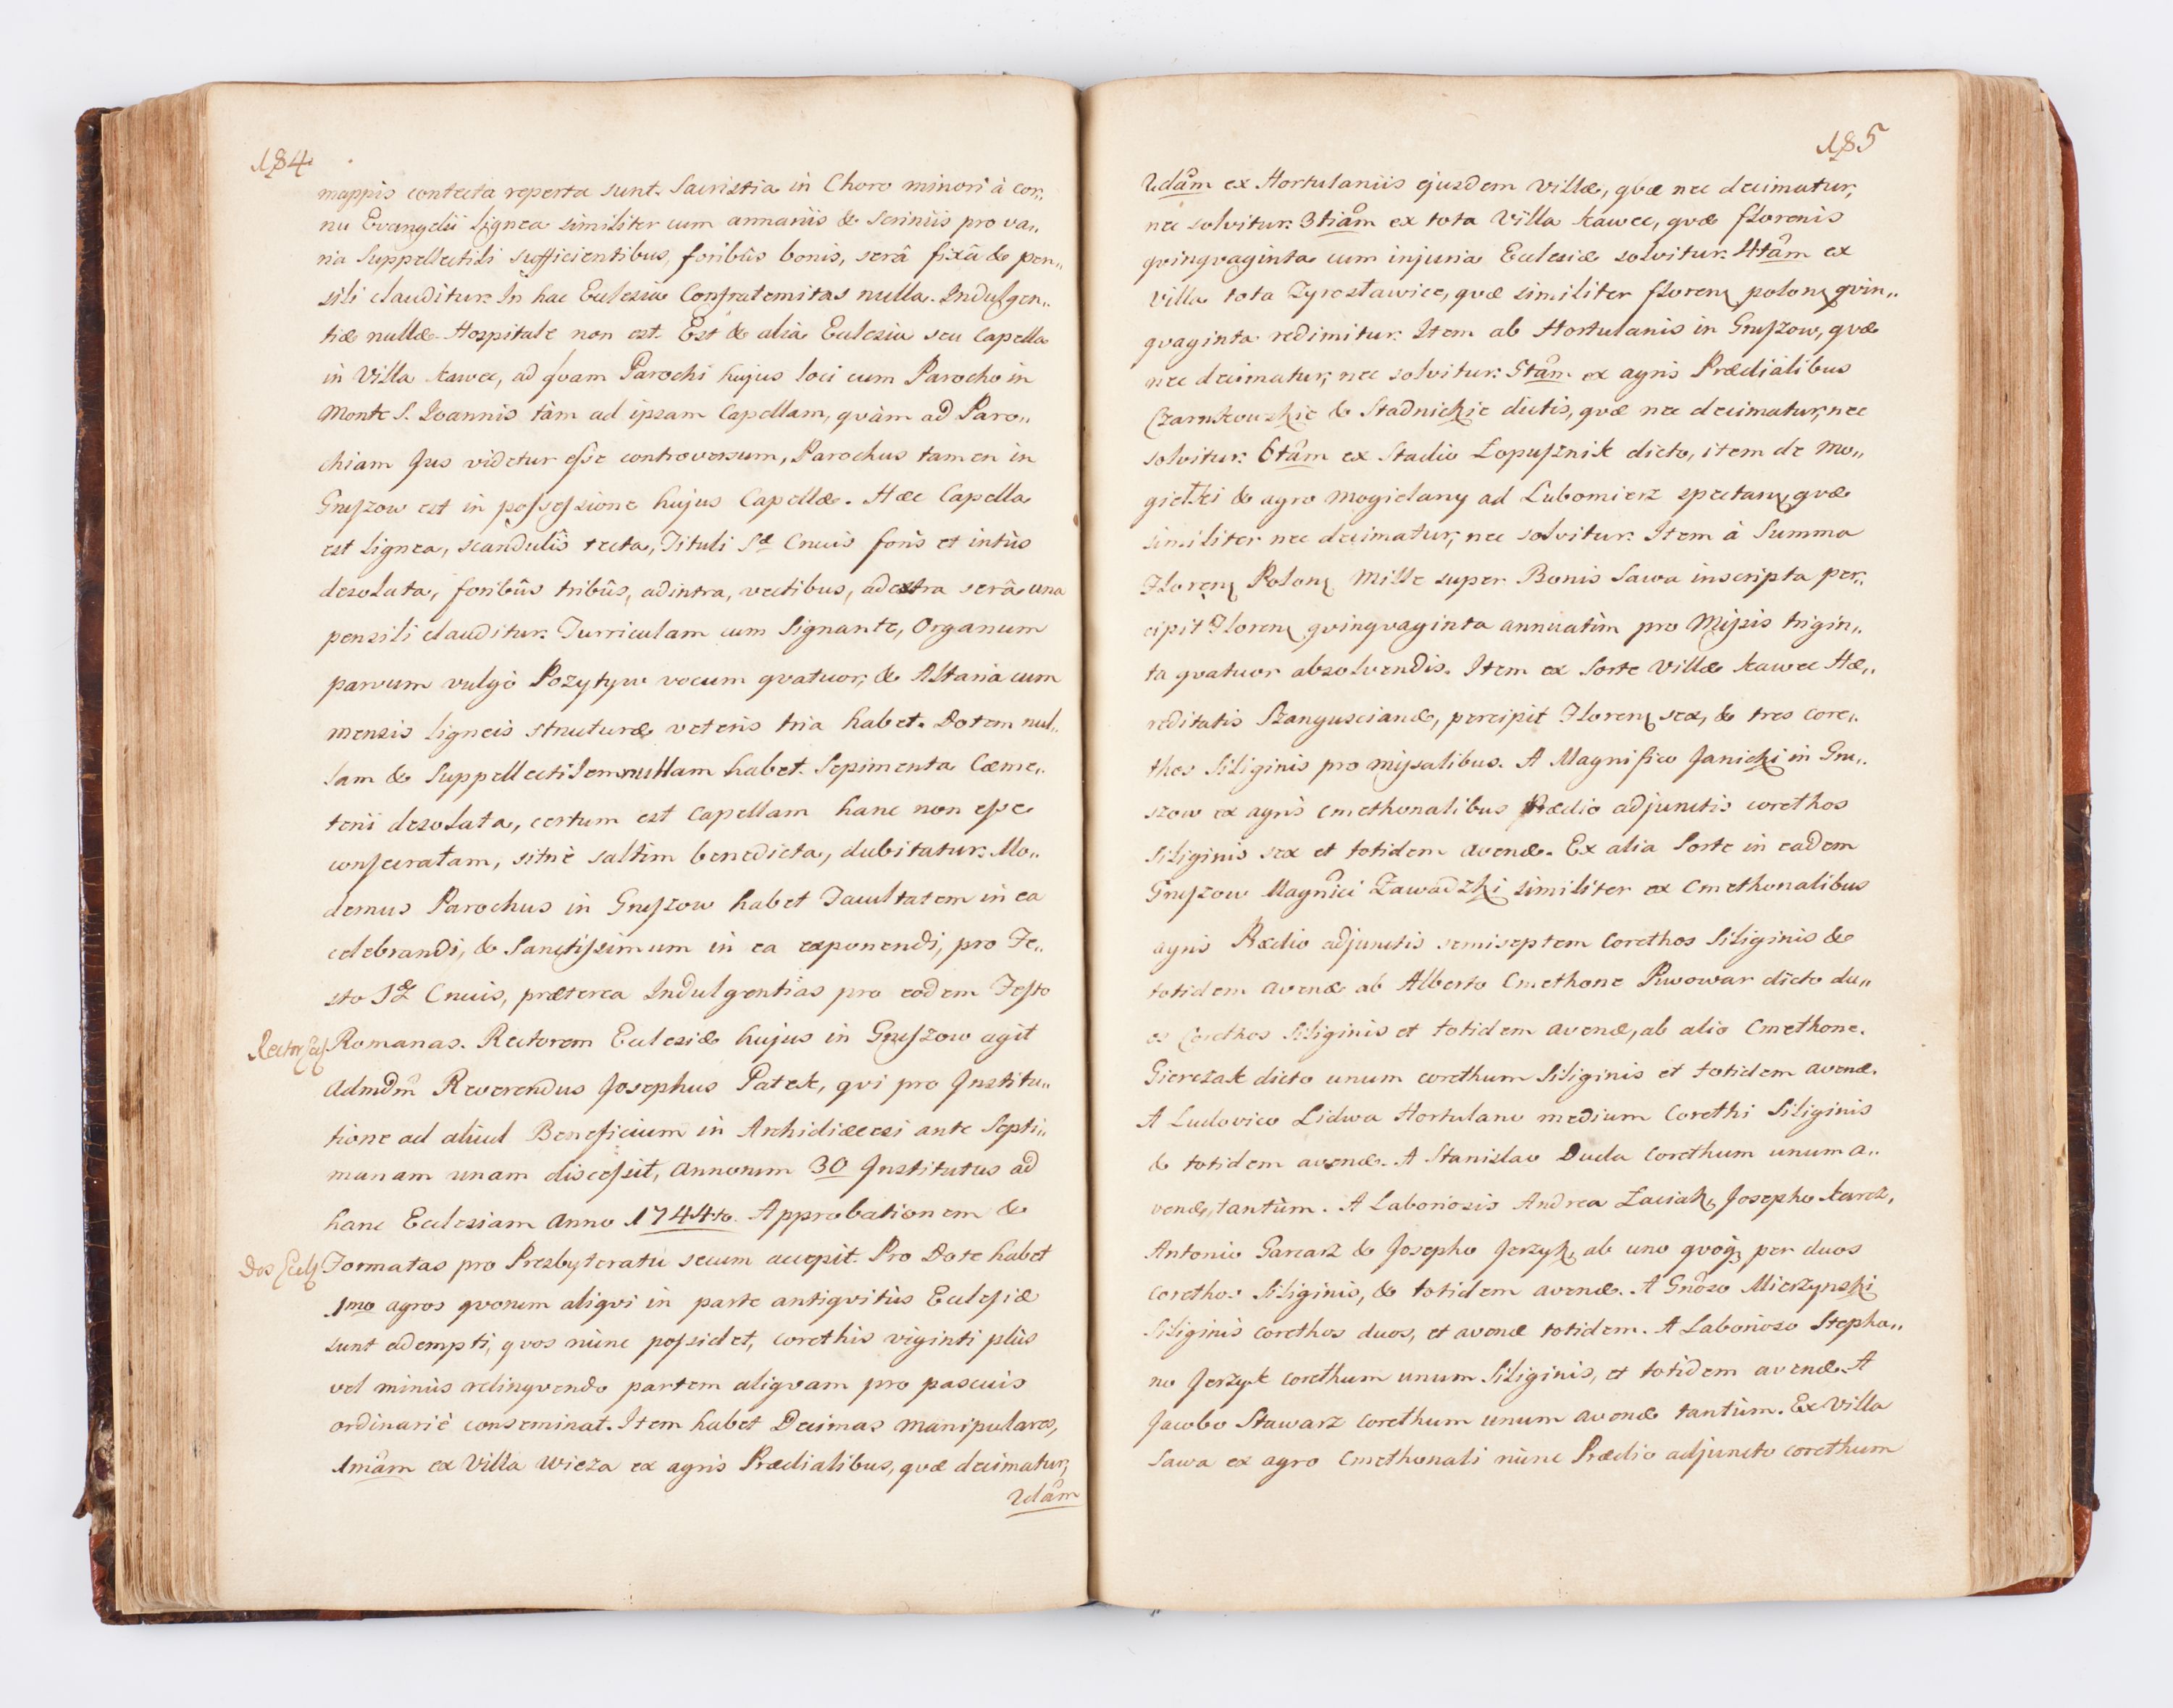 184
mappis contecta reperta sunt. Sacristia in Choro minori à cor„
nu Evangelii lignea similiter cum armariis & scriniis pro va„
ria Suppellectili sufficientibus, foribûs bonis, serâ fixâ & pen„
sili clauditur. In hac Ecclesia Confraternitas nulla. Indulgen„
tiæ nullæ. Hospitale non est. Est & alia Ecclesia seu Capella
in Villa Kawec, ad quam Parochi hujus loci cum Parocho in
Monte S. Ioannis tàm ad ipsam Capellam, quàm ad Paro„
chiam Jus videtur esse controversum, Parochus tamen in
Gruszow est in possessione hujus Capellæ. Hæc Capella
est lignea, scandulis tecta, Tituli Sæ Crucis foris et intùs
desolata, foribûs tribûs, adintra, vectibus, adextra serâ una
pensili clauditur. Turriculam cum Signante, Organum
parvum vulgò Pozytyw vocum qvatuor, & Altaria cum
mensis ligneis structuræ veteris tria habet. Dotem nul„
lam & Suppellectilem nullam habet. Sepimenta Cæme„
terii desolata, certum est Capellam hanc non esse
consecratam, sitnè saltim benedicta, dubitatur. Mo„
dernus Parochus in Gruszow habet Facultatem in ea
celebrandi, & Sanctissimum in ea exponendi, pro Fe„
sto Sæ Crucis, præterea Indulgentias pro eodem Festo
Rector Eccl Romanas. Rectorem Ecclesiæ hujus in Gruszow agit
Admdm̃ Reverendus Josephus Patek, qvi pro Institu„
tione ad aliud Beneficium in Archidiæcesi ante Septi„
manam unam discessit, annorum 30 Institutus ad
hanc Ecclesiam Anno 1744to. Approbationem &
Dos Eccl Formatas pro Presbyteratu secum accepit. Pro Dote habet
1mo agros qvorum aliqvi in parte antiqvitùs Ecclesiæ
sunt adempti, qvos nùnc possidet, corethis viginti plùs
vel minùs relinqvendo partem aliqvam pro pascuis
ordinariè conseminat. Item habet Decimas manipulares,
1mãm ex Villa Wieza ex agris Prædialibus, qvæ decimatur,
2dãm
185
2dãm ex Hortulaniis ejusdem Villæ, qvæ nec decimatur,
nec solvitur. 3tiãm ex tota Villa Kawec, qvæ florenis
qvinqvaginta cum injuria Ecclesiæ solvitur. 4tãm ex
Villa tota Zyrosławice, qvæ similiter floren polon qvin„
qvaginta redimitur. Item ab Hortulanis in Gruszow, qvæ
nec decimatur, nec solvitur. 5tãm ex agris Prædialibus
Czarnkowskie & Stadnickie dictis, qvæ nec decimatur, nec
solvitur. 6tãm ex Stadio Łopusznik dicto, item de Mo„
giełki & agro Mogielany ad Lubomierz spectan qvæ
similiter nec decimatur, nec solvitur. Item à Summa
Floren Polon Mille super Bonis Sawa inscripta per„
cipit Floren qvinqvaginta annuatìm pro Missis trigin„
ta qvatuor absolvendis. Item ex Sorte Villæ Kawec Hæ„
reditatis Szangusciana, percipit Floren sex, & tres core„
thos Siliginis pro missalibus. A Magnifico Janicki in Gru„
szow ex agris Cmethonalibus Prædio adjunctis corethos
Siliginis sex et totidem avenæ. Ex alia Sorte in eadem
Gruszow Magnĩci Zawadzki similiter ex Cmethonalibus
agris Prædio adjunctis semiseptem Corethos Siliginis &
totidem avenæ ab Alberto Cmethone Piwowar dicto du„
os Corethos Siliginis et totidem avenæ, ab alio Cmethone
Gierczak dicto unum corethum Siliginis et totidem avenæ.
A Ludovico Lidwa Hortulano medium Corethi Siliginis
& totidem avenæ. A Stanislao Duda Corethum unum a„
venæ, tantùm. A Laboriosis Andrea Łaciak, Josepho Karcz,
Antonio Garcarz & Josepho Jerzyk, ab uno qvoq; per duos
Corethos Siliginis, & totidem avenæ. A Gnõso Mierzynski
Siliginis corethos duos, et avenæ totidem. A Laborioso Stepha„
no Jerzyk corethum unum Siliginis, et totidem avenæ. A
Jacobo Stawarz corethum unum avenæ tantùm. Ex Villa
Sawa ex agro Cmethonali nùnc Prædio adjuncto corethum